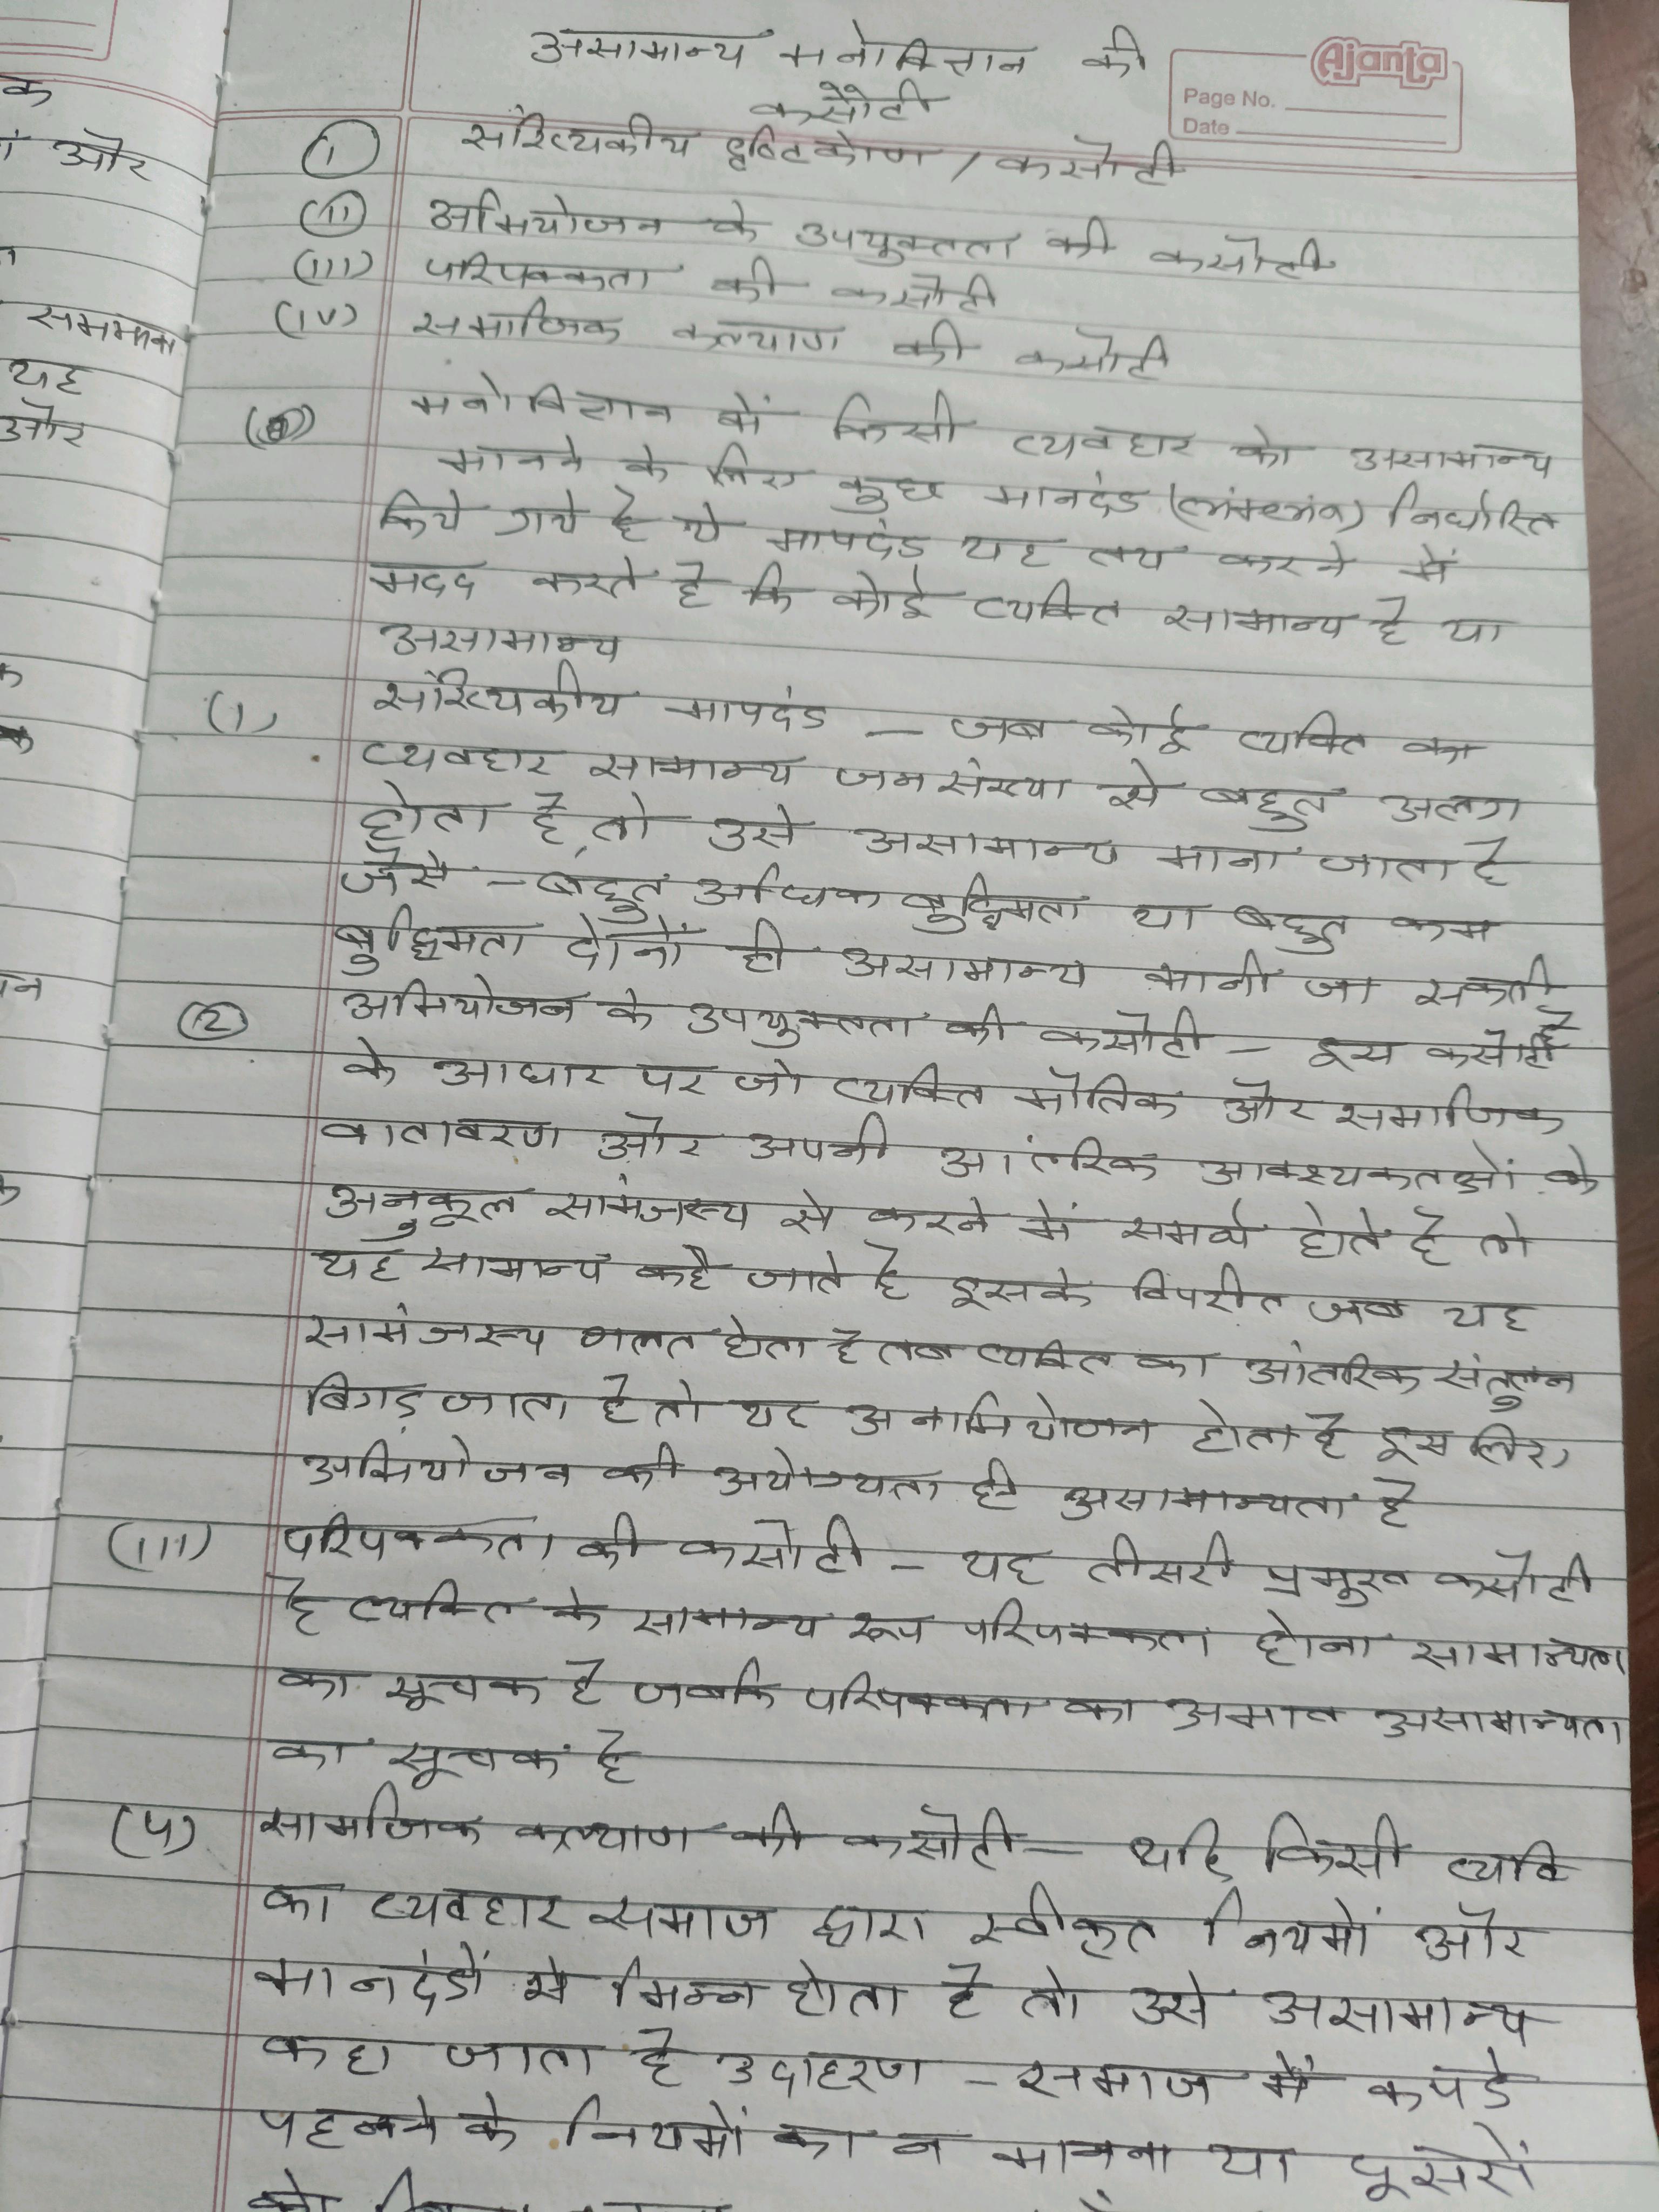 असामान्य मनोविज्ञान की
कसौटी
Ajanta
Page No.
Date
(i) सांख्यिकीय दृष्टिकोण / कसौटी
(ii) अभियोजन के उपयुक्तता की कसौटी
(iii) परिपक्कता की कसौटी
(iv) समाजिक कल्याण की कसौटी
मनोविज्ञान में किसी व्यवहार को असामान्य
मानने के लिए कुछ मानदंड निर्धारित
किये गये है ये मापदंड यह तय करने में
मदद करते है कि कोई व्यक्ति सामान्य है या
असामान्य
(1) सांख्यिकीय मापदंड - जब कोई व्यक्ति का
व्यवहार सामान्य जनसंख्या से बहुत अलग
होता है, तो उसे असामान्य माना जाता है
जैसे - बहुत अधिक बुद्धिमता या बहुत कम
बुद्धिमता दोनों ही असामान्य मानी जा सकती है
(2) अभियोजन के उपयुक्तता की कसौटी - इस कसौटी
के आधार पर जो व्यक्ति भौतिक और समाजिक
वातावरण और अपनी आंतरिक आवश्यकताओं के
अनुकूल सामंजस्य से करने में समर्थ होते है तो
यह सामान्य कहै जाते है इसके विपरीत जब यह
सामंजस्य गलत होता है तब व्यक्ति का आंतरिक संतुलन
बिगड़ जाता है तो यह अनाभियोजन होता है इस लिए
अभियोजन की अयोग्यता ही असामान्यता है
(iii) परिपक्कता की कसौटी - यह तीसरी प्रमुख कसौटी
है व्यक्ति के सामान्य रूप परिपक्कता होना सामान्यता
का सूचक है जबकि परिपक्कता का अभाव असामान्यता
का सूचक है
(4) सामजिक कल्याण की कसौटी - यदि किसी व्यक्ति
का व्यवहार समाज द्वारा स्वीकृत नियमों और
मानदंडों से भिन्न होता है तो उसे असामान्य
कहा जाता है उदाहरण - समाज में कपडे
पहनने के नियमों का न मानना या दूसरों